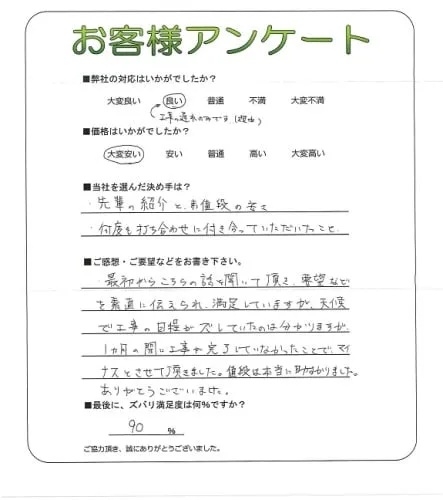 お客様アンケート
■弊社の対応はいかがでしたか?
大変良い 良い 普通 不満 大変不満
工事の遅れのみです(理由)
■価格はいかがでしたか?
大変安い 安い 普通 高い 大変高い
■当社を選んだ決め手は?
・先輩の紹介と、お値段の安さ
・何度も打ち合わせに付き合っていただいたこと、
■ご感想・ご要望などをお書き下さい。
・最初からこちらの話を聞いて頂き、要望など
を素直に伝えられ、満足していますが、天候
で工事の日程がズレていたのは分かりますが、
1カ月の間に工事が完了していなかったことで、マイ
ナスとさせて頂きました。値段は本当に助かりました。
ありがとうございました。
■最後に、ズバリ満足度は何%ですか?
90 %
ご協力頂き、誠にありがとうございました。